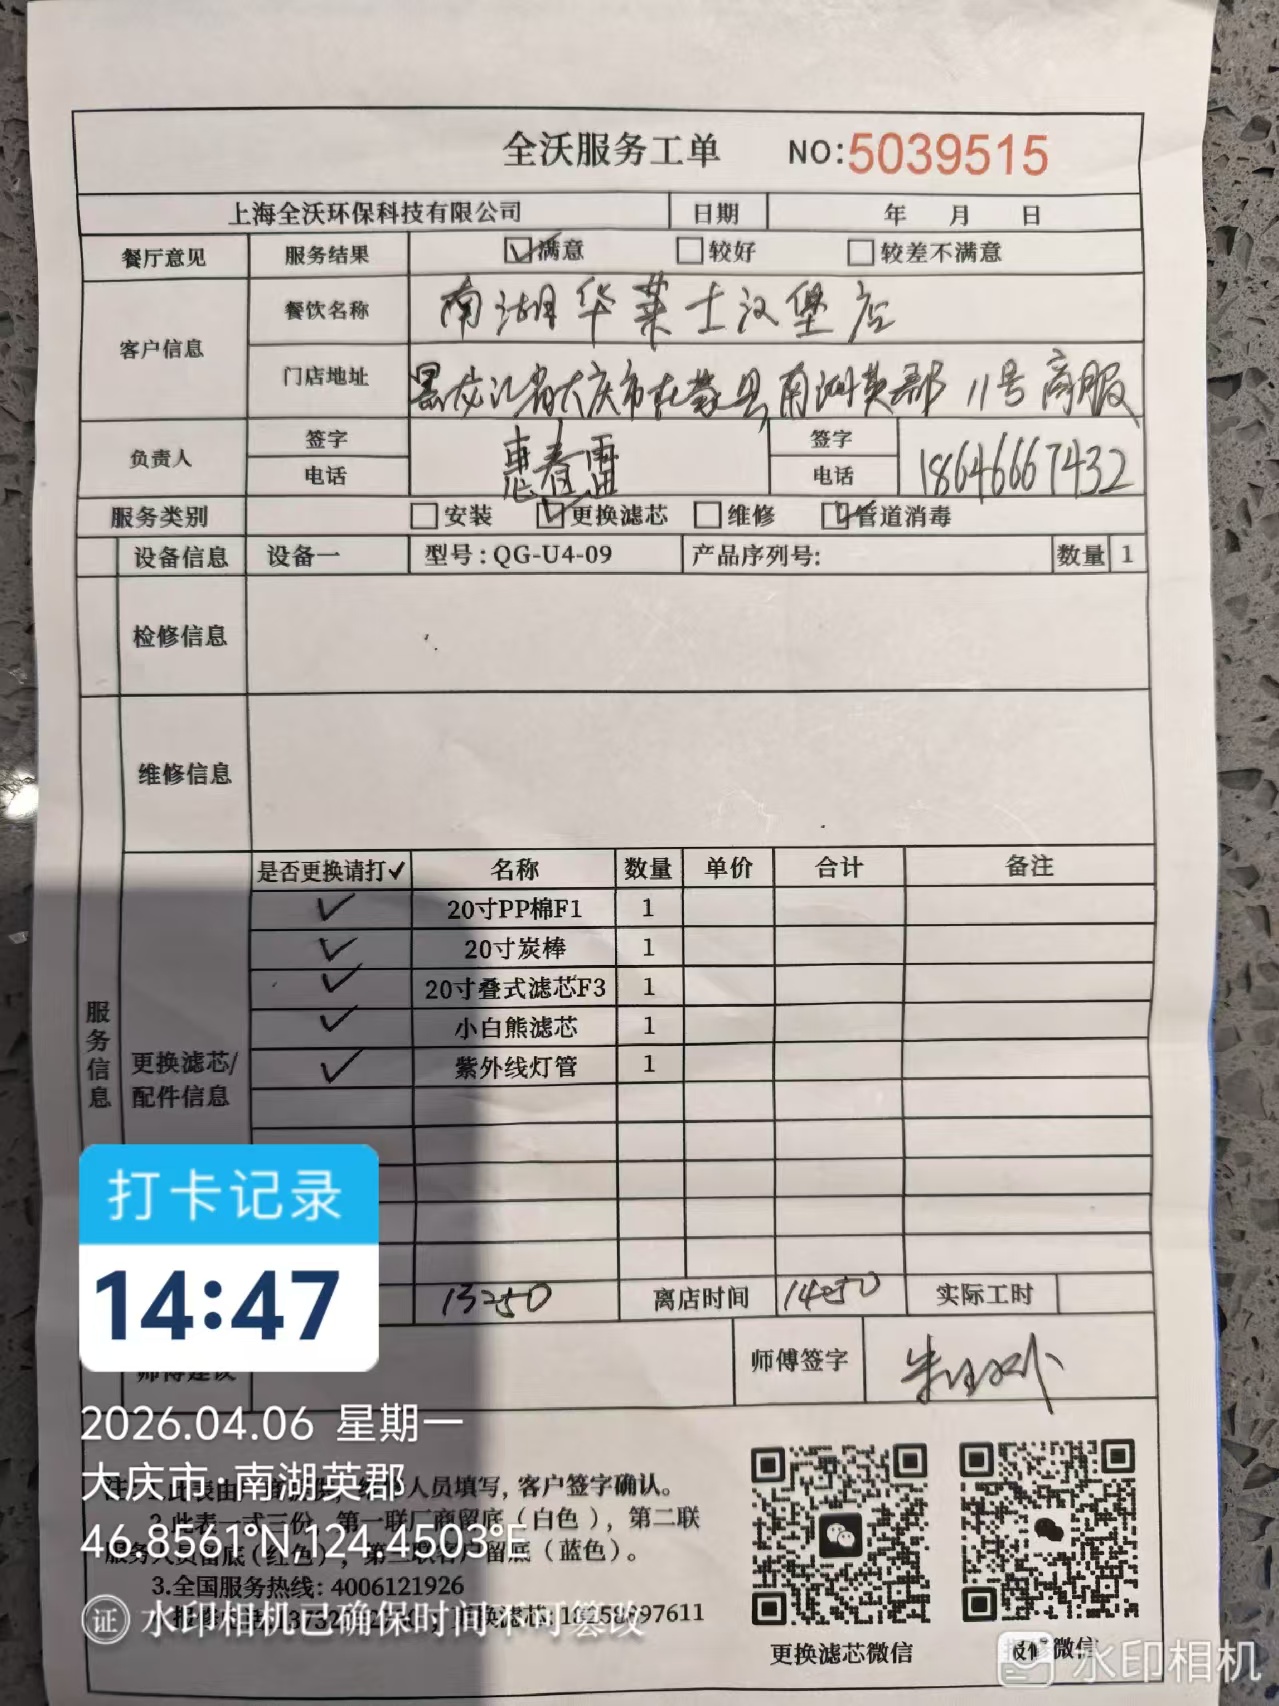 全沃服务工单 NO:5039515
上海全沃环保科技有限公司 日期 年 月 日
餐厅意见 服务结果 满意 较好 较差不满意
客户信息 餐饮名称 南湖华莱士汉堡店
门店地址 黑龙江省大庆市杜蒙县南湖英郡11号商服
负责人 签字 惠春雷 签字
电话 电话 18646667432
服务类别 安装 更换滤芯 维修 管道消毒
设备信息 设备一 型号:QG-U4-09 产品序列号: 数量 1
检修信息
维修信息
服务信息
更换滤芯/
配件信息
是否更换请打✓ 名称 数量 单价 合计 备注
✓ 20寸PP棉F1 1
✓ 20寸炭棒 1
✓ 20寸叠式滤芯F3 1
✓ 小白熊滤芯 1
✓ 紫外线灯管 1
打卡记录
14:47
离店时间 实际工时
师傅建议 师傅签字
2026.04.06 星期一
大庆市·南湖英郡
46.8561°N,124.4503°E
人员填写,客户签字确认。
2.此表一式三份,第一联厂商留底(白色),第二联
服务人员留底(红色),第三联客户留底(蓝色)。
3.全国服务热线:4006121926
更换滤芯:
水印相机已确保时间不可篡改
更换滤芯微信
报修微信
水印相机